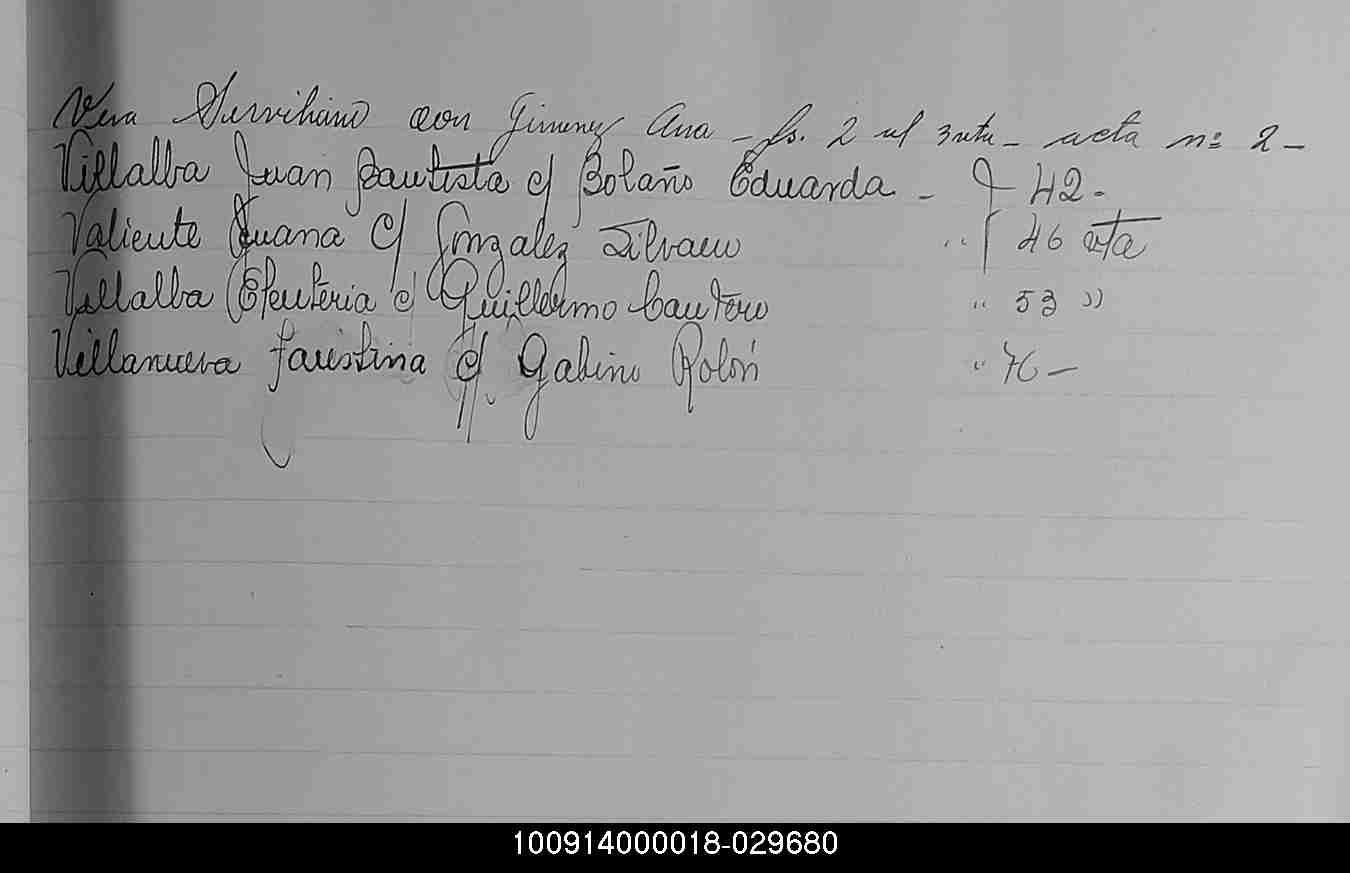 Vera Serviliano con Gimenez Ana - fs. 2 al 3 vta - acta nº 2 -
Villalba Juan Bautista c/ Bolaño Eduarda - f 42 -
Valiente Juana c/ Gonzalez Silvano " f 46 vta
Villalba Eleuteria c/ Guillermo Cautero " 53 "
Villanueva Faustina c/ Gabino Rolón " 76 -
100914000018-029680